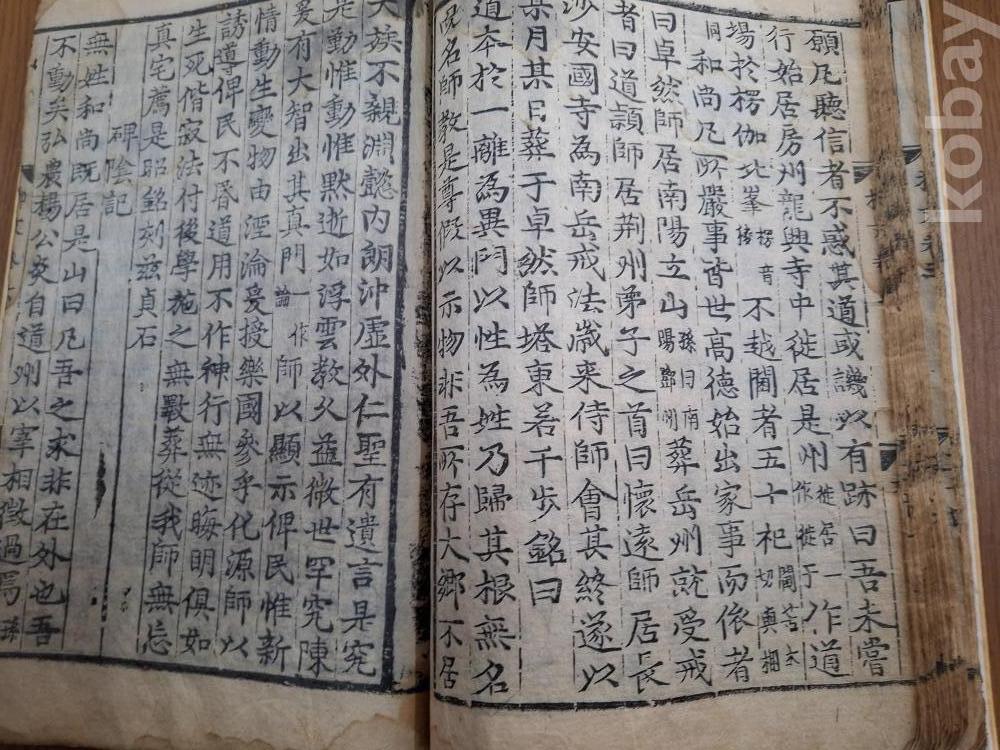 願凡聽信者不惑其道或譏以有跡曰吾未嘗
行始居房州龍興寺中徙居是州徙居一作徙于作道
場於楞伽北峯楞音棱不越閫者五十祀閫苦本切與梱
同和尚凡所嚴事皆世高德始出家事而依者
曰卓然師居南陽立山孫曰南陽鄧州葬岳州就受戒
者曰道穎師居荆州弟子之首曰懷遠師居長
沙安國寺為南岳戒法歲來侍師會其終遂以
某月某日葬于卓然師塔東若干步銘曰
道本於一離為異門以性為姓乃歸其根無名
名師教是尊假以示物非吾所存大鄉不居
大族不親淵懿内朗沖虛外仁聖有遺言是究
是勤惟動惟默逝如浮雲教久益微世罕究陳
爰有大智出其真門一作論師以顯示俾民惟新
情動生變物由湮淪爰授樂國參乎化源師以
誘導俾民不昏道用不作神行無迹晦明俱如
生死偕寂法付後學施之無斁葬從我師無忘
真宅薦是昭銘刻兹貞石
碑陰記
無姓和尚既居是山曰凡吾之求非在外也吾
不動矣弘農楊公炎自道州以宰相徵過焉孫
kobay